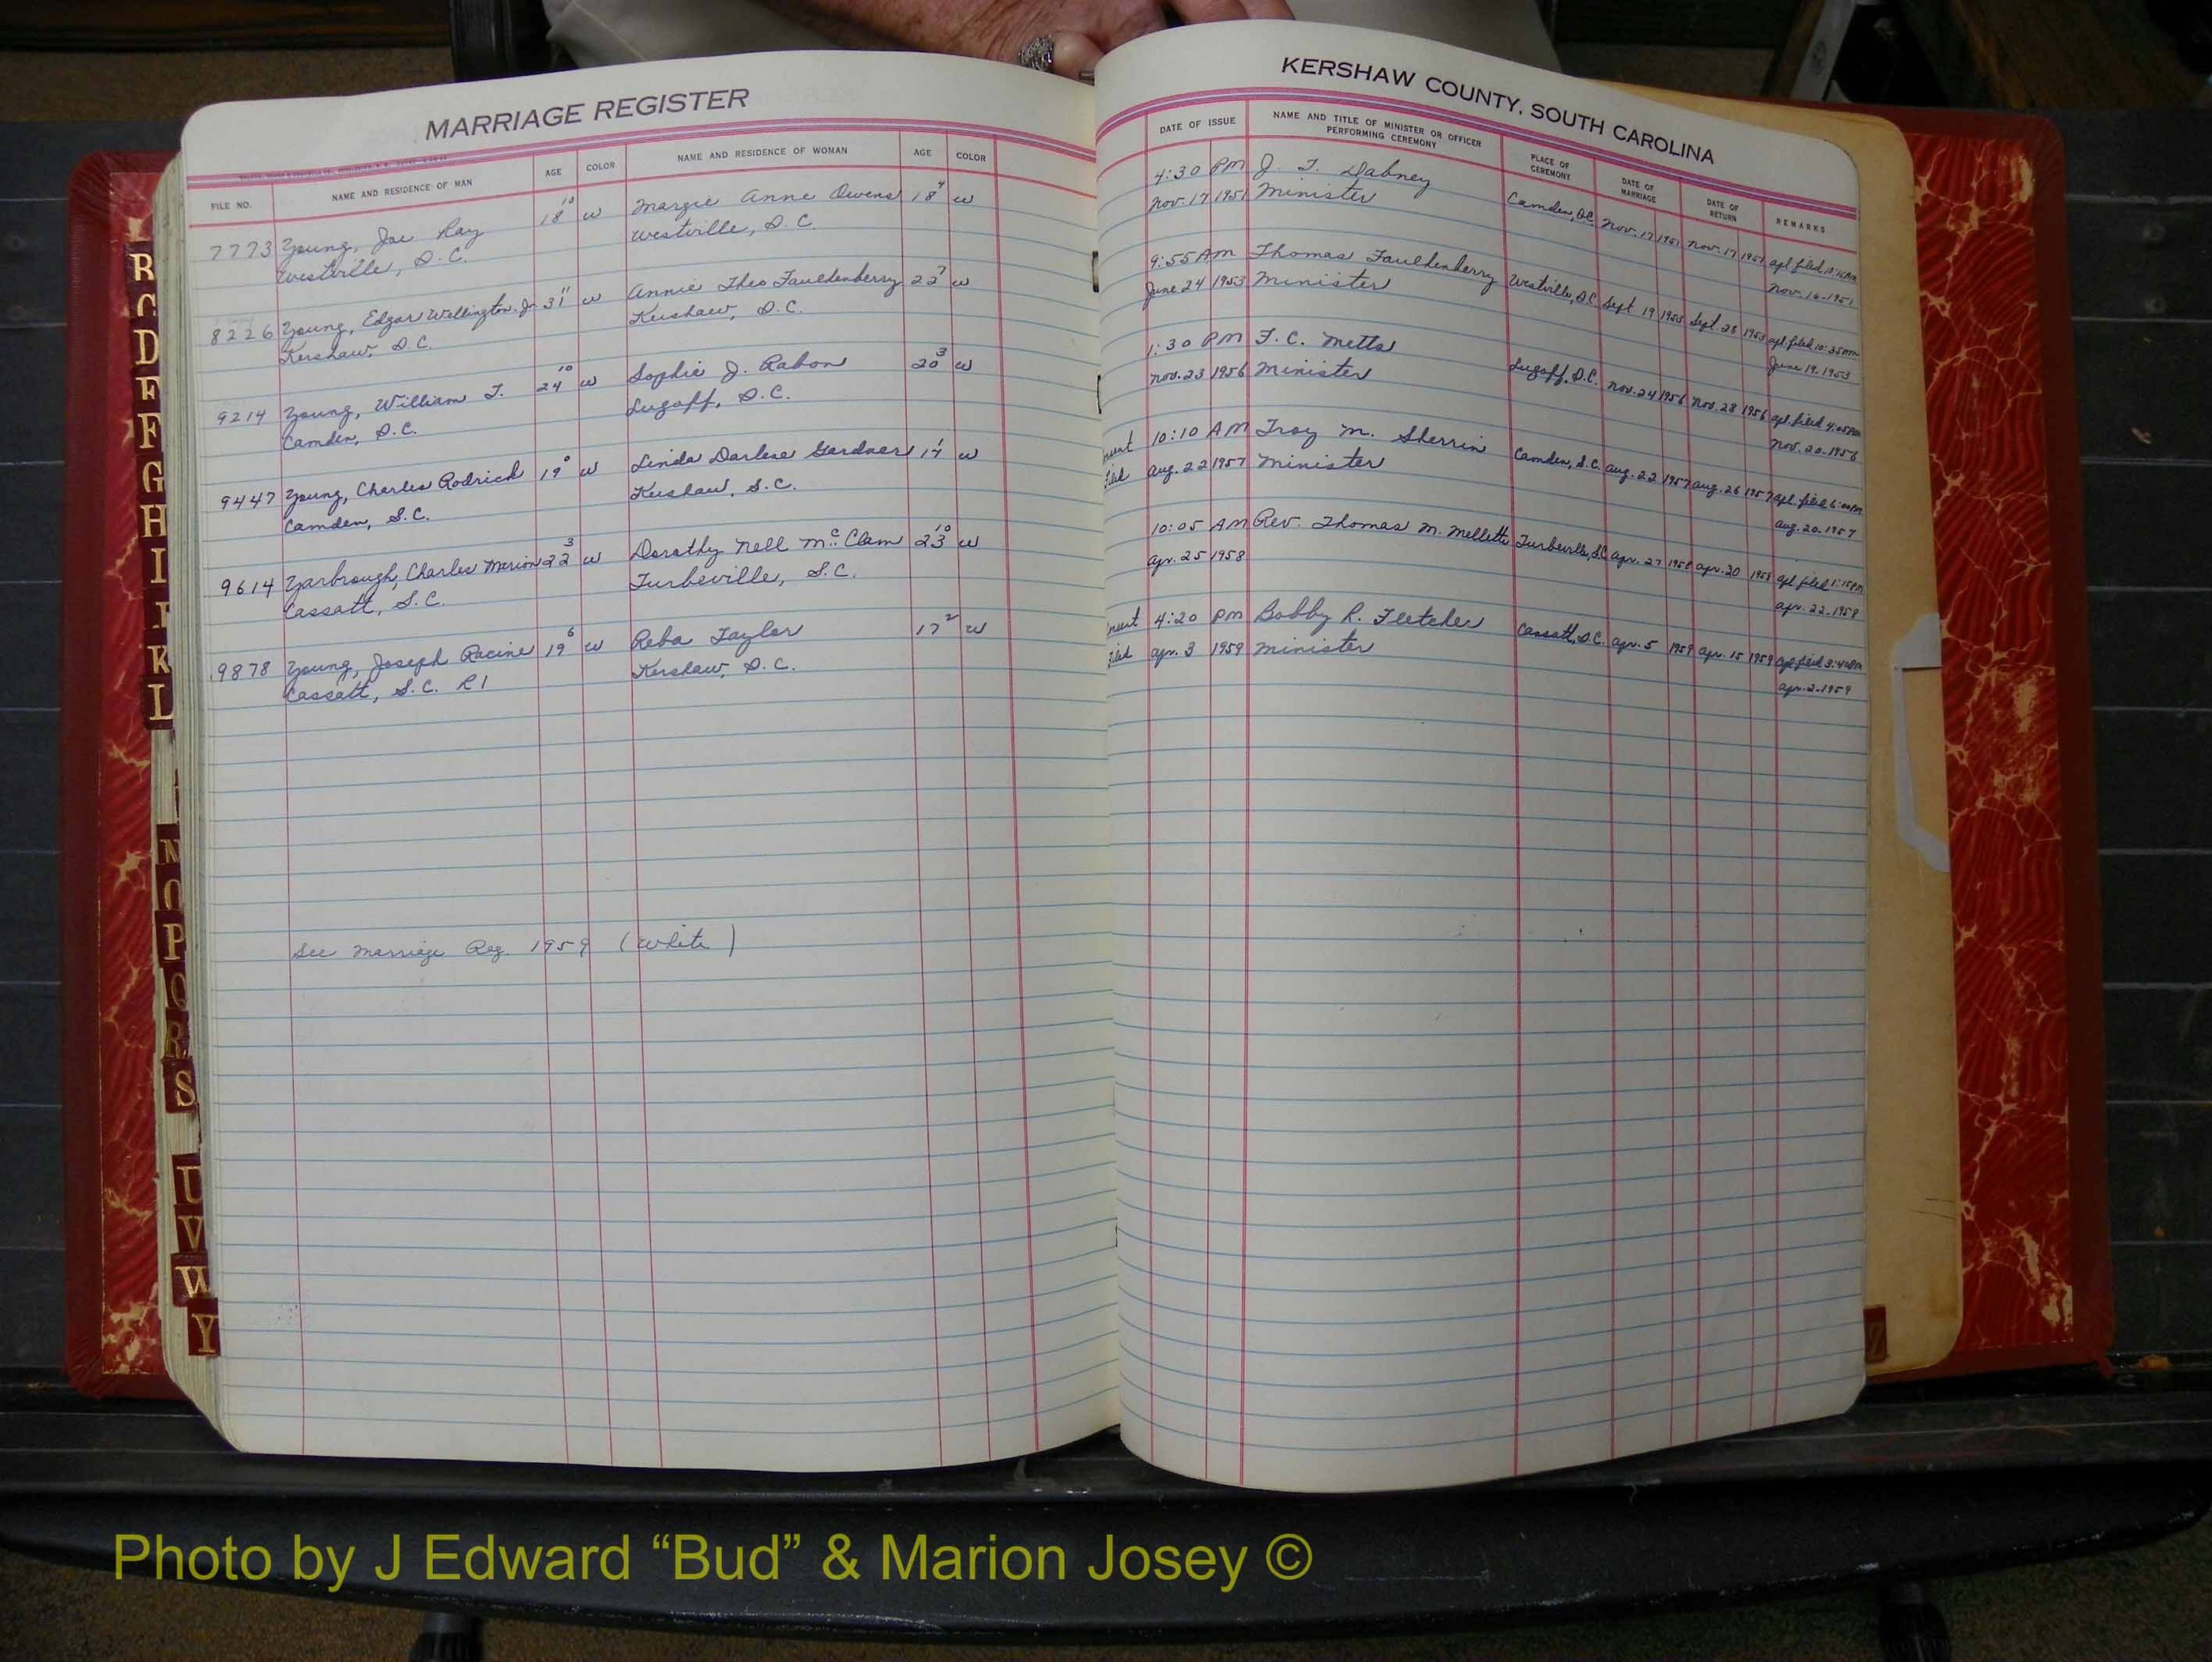 MARRIAGE REGISTER
FILE NO. NAME AND RESIDENCE OF MAN AGE COLOR NAME AND RESIDENCE OF WOMAN AGE COLOR
7773 Young, Joe Ray 18 10 w Margie Anne Owens 18 4 w
Westville, S.C. Westville, S.C.
8226 Young, Edgar Wellington Jr. 31 11 w Annie Theo Faulkenberry 22 7 w
Kershaw, S.C. Kershaw, S.C.
9214 Young, William T. 24 10 w Sophie J. Rabon 20 3 w
Camden, S.C. Lugoff, S.C.
9447 Young, Charles Rodrick 19 0 w Linda Darlese Gardner w
Camden, S.C. Kershaw, S.C.
9614 Yarbrough, Charles Marion 22 3 w Dorothy Nell McClam 23 10 w
Cassatt, S.C. Turbeville, S.C.
9878 Young, Joseph Racine 19 6 w Reba Taylor 17 2 w
Cassatt, S.C. R1 Kershaw, S.C.
See Marriage Reg. 1959 (White)
KERSHAW COUNTY, SOUTH CAROLINA
DATE OF ISSUE NAME AND TITLE OF MINISTER OR OFFICER PERFORMING CEREMONY PLACE OF CEREMONY DATE OF MARRIAGE DATE OF RETURN REMARKS
4:30 PM J. T. Dabney
Nov. 17 1951 Minister Camden, S.C. Nov. 17 1951 Nov. 17 1951 apl filed 10:15 AM
Nov. 16-1951
9:55 AM Thomas Faulkenberry
June 24 1953 Minister Westville, S.C. Sept 19 1953 Sept. 28 1953 apl. filed 10:35
June 19. 1953
1:30 PM T. C. Metts
Nov. 23 1956 Minister Lugoff, S.C. Nov. 24 1956 Nov. 28 1956 apl. filed 4:05 PM
Nov. 20-1956
10:10 AM Troy M. Sherrin
filed Aug. 22 1957 Minister Camden, S.C. Aug. 22 1957 Aug. 26 1957 apl. filed 6:00 PM
Aug. 20. 1957
10:05 AM Rev. Thomas M. Mellette Turbeville, S.C. Apr. 27 1958 Apr. 30 1958 apl filed 1:15 PM
Apr. 25 1958
Apr. 22-1958
4:20 PM Bobby R. Fletcher
filed Apr. 3 1959 Minister Cassatt, S.C. Apr. 5 1959 Apr. 15 1959 apl. filed 3:40 PM
Apr. 2-1959
R
C
D
E
F
G
H
I
K
L
N
O
P
Q
R
S
U
V
W
Y
Z
Photo by J Edward “Bud” & Marion Josey ©